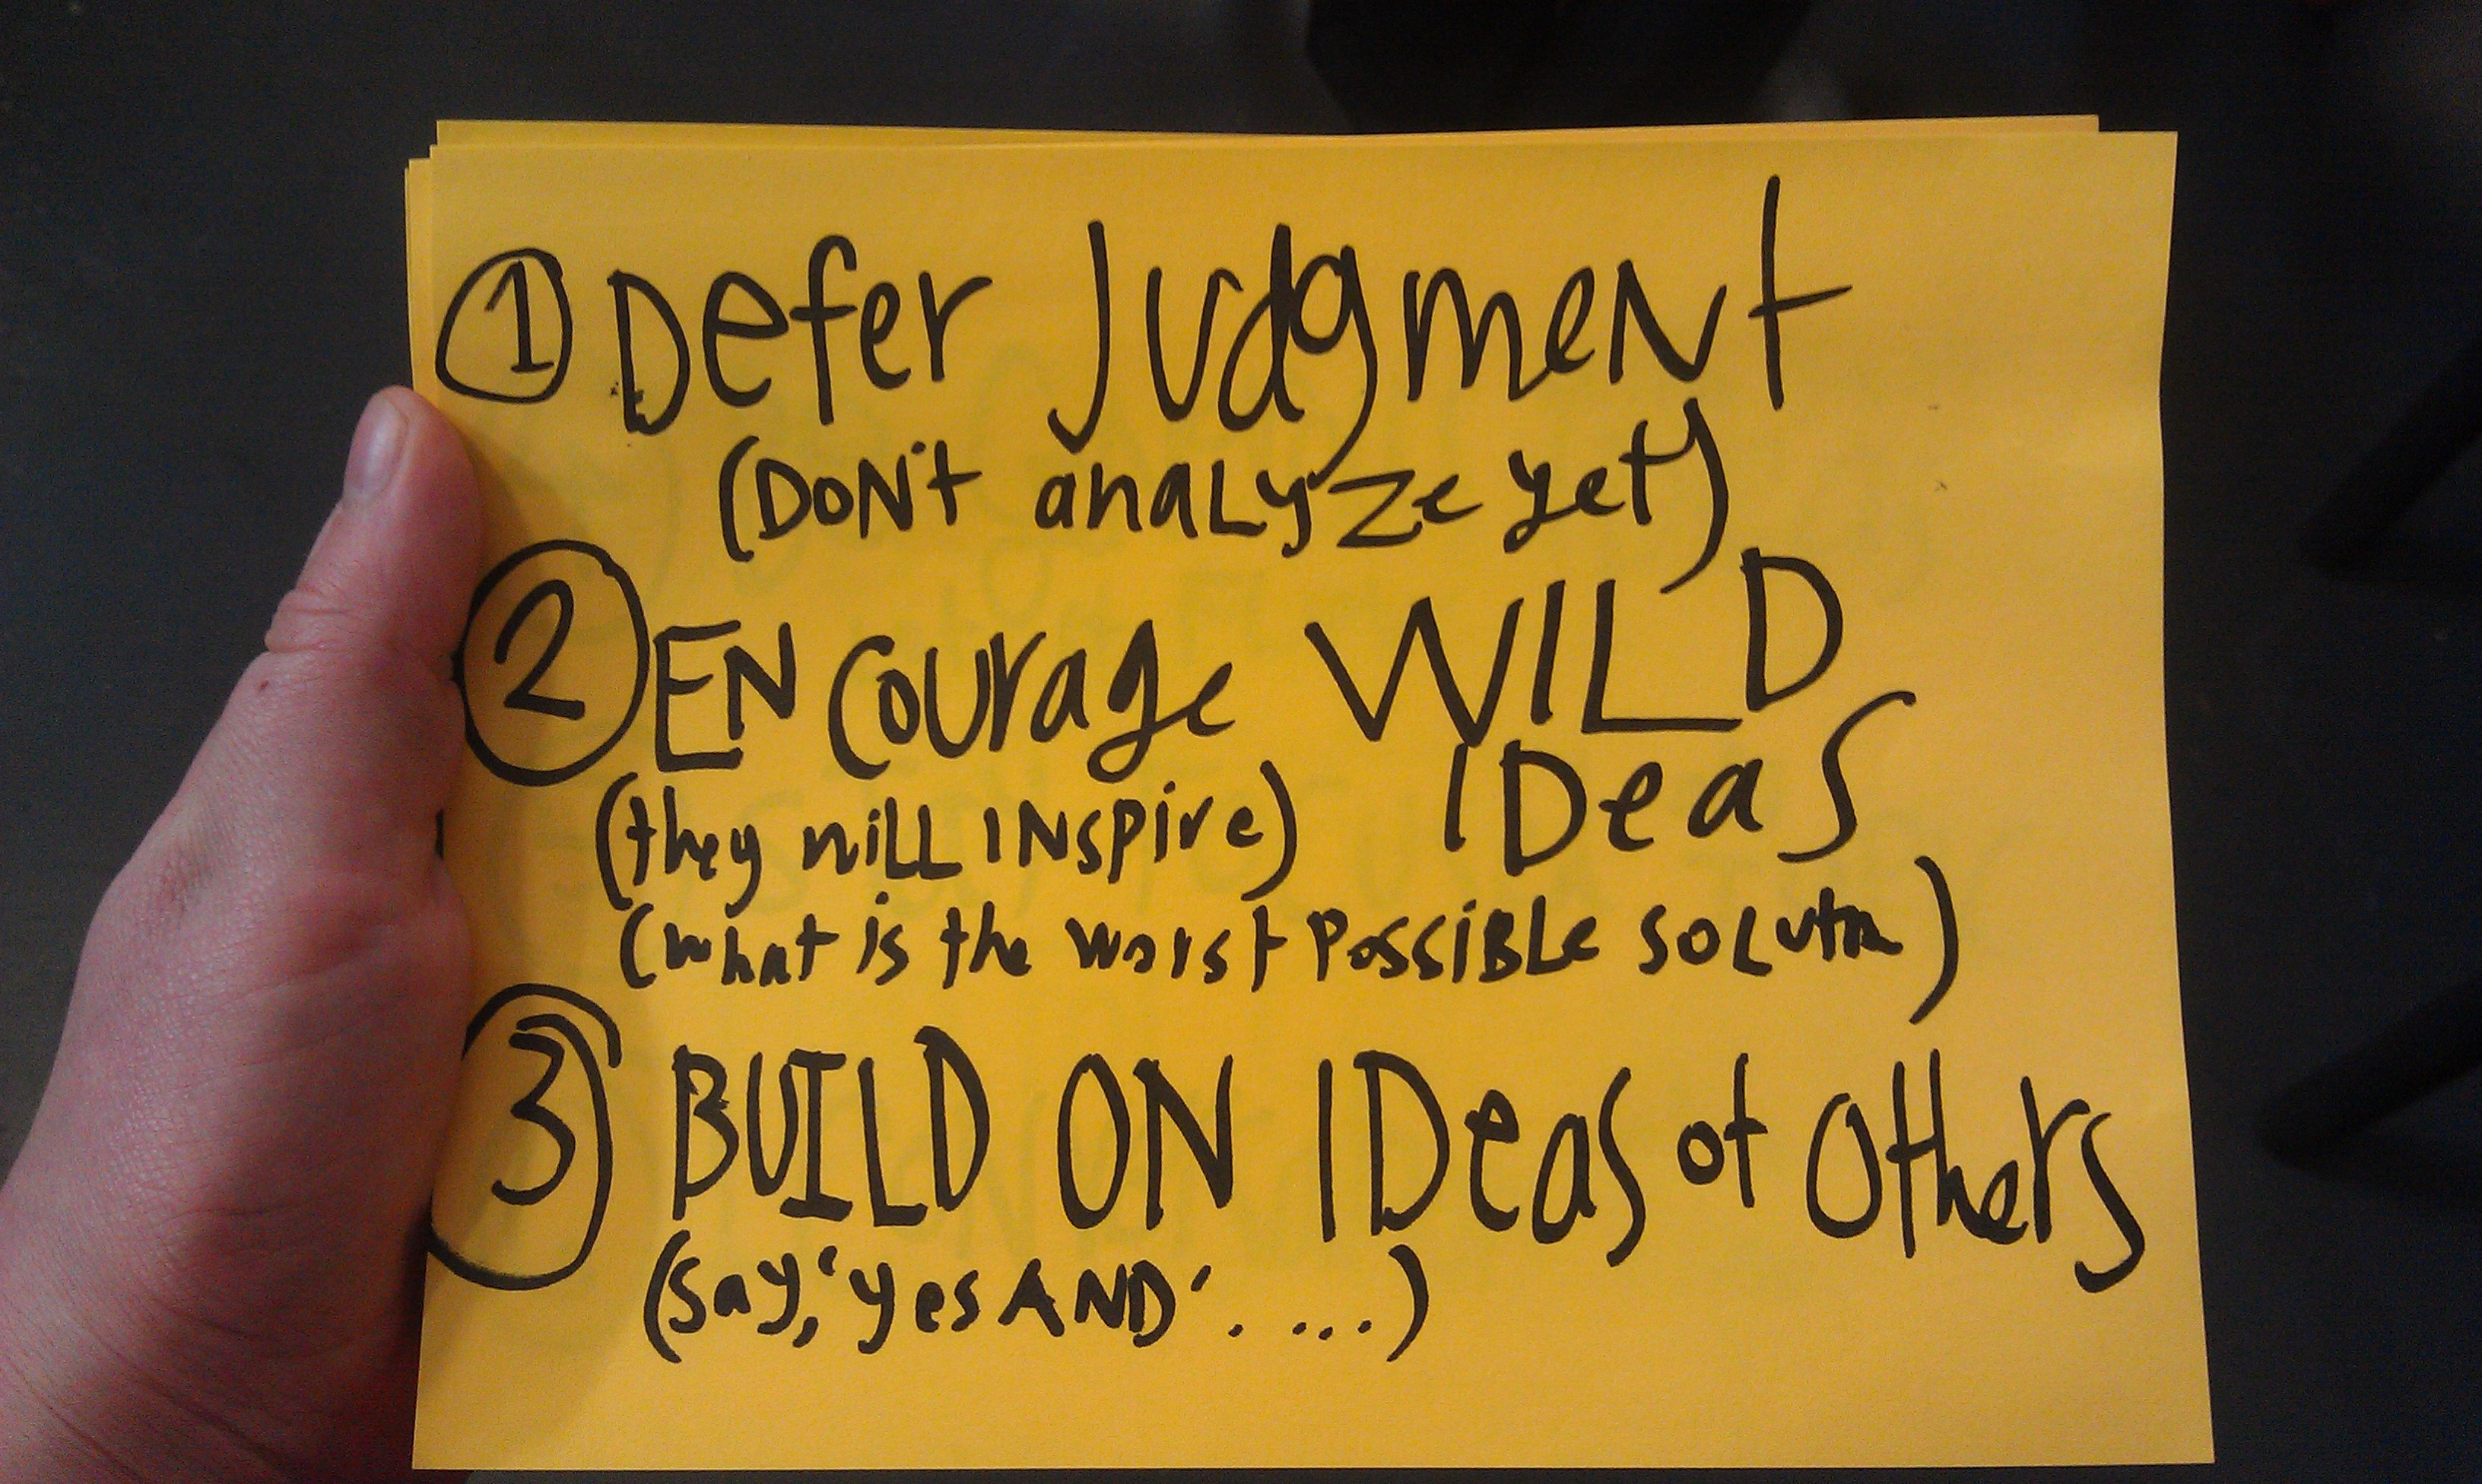 ① Defer Judgment
(DON't anaLyze yet)
② ENCourage WILD
IDeas
(they will INspire)
(what is the worst PossiBLe soLutn)
③ BUILD ON IDeas of Others
(say, 'yes AND' . ...)